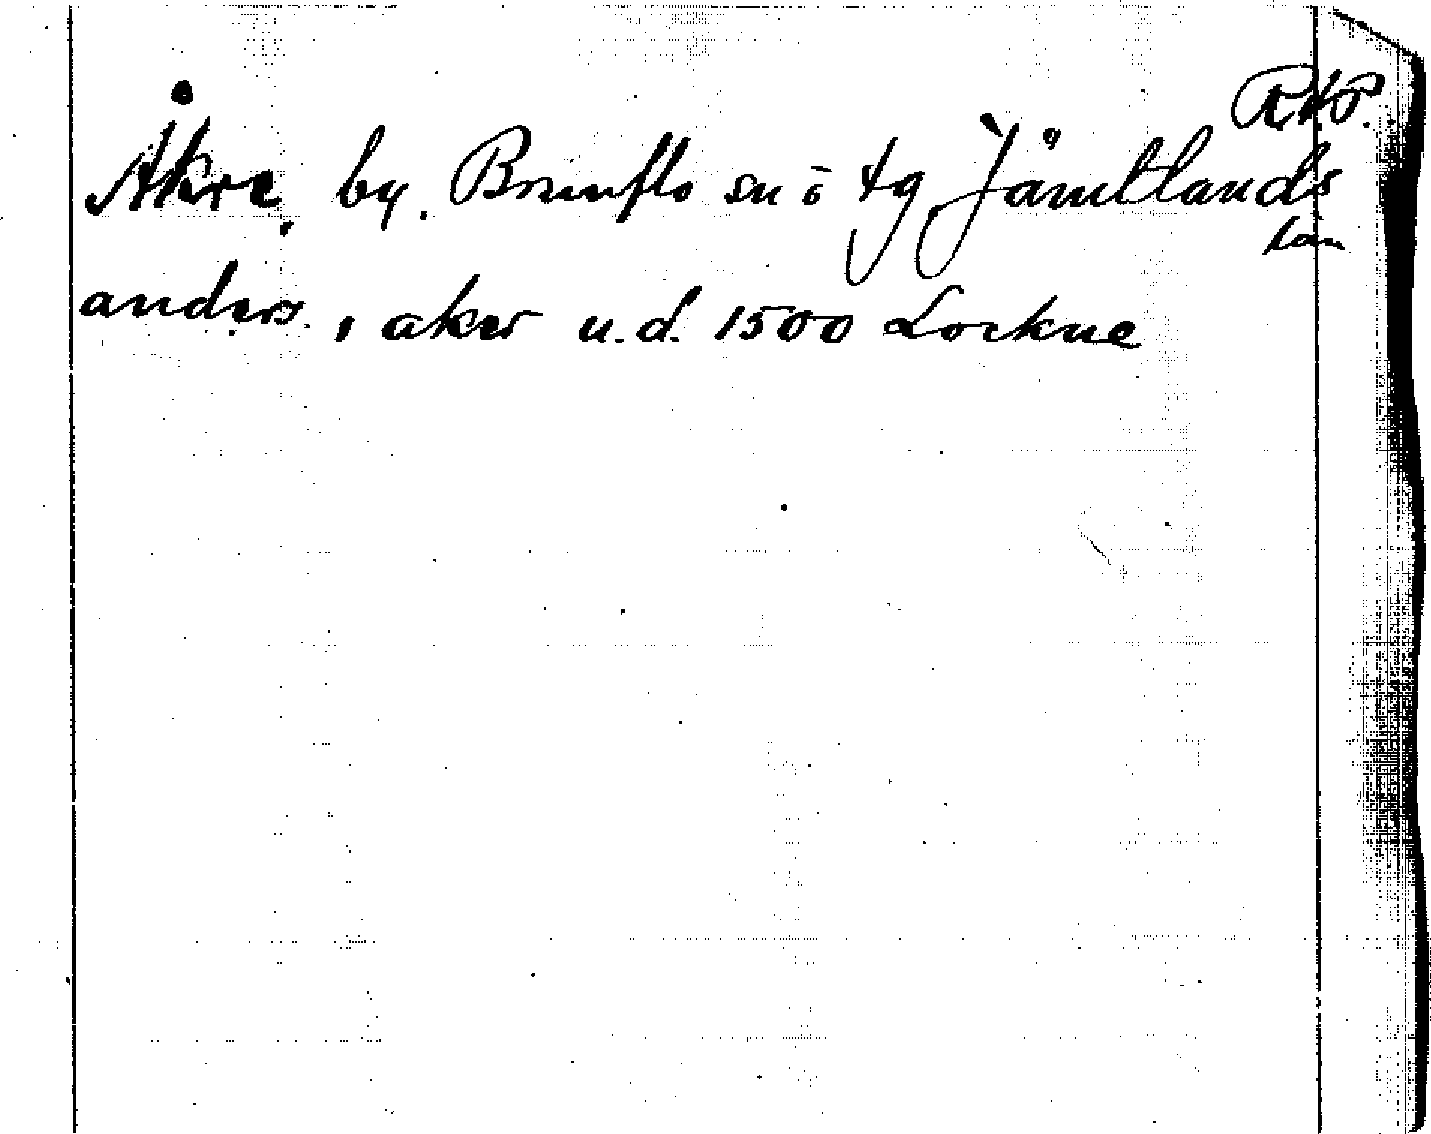 RAP.
Åkre, by. Brunflo sn o tg Jämtlands
län
anders. i aker u.d. 1500 Lockne